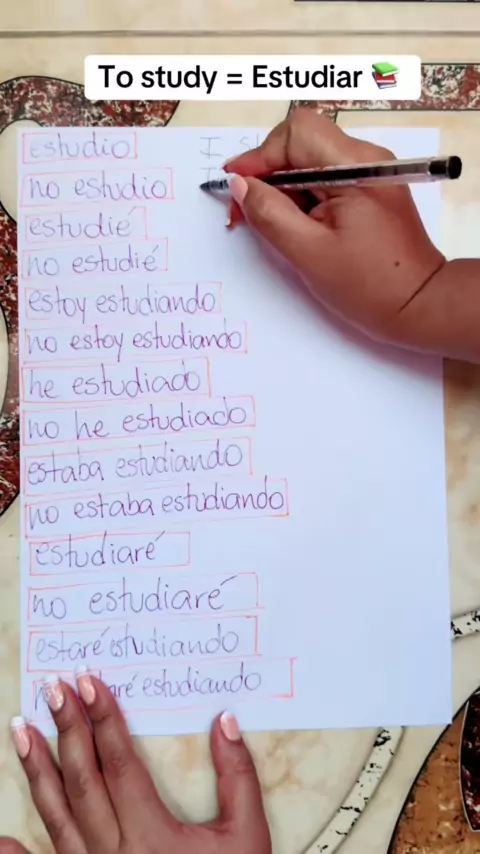 To study = Estudiar 📚
estudio I
no estudio
estudié
no estudié
estoy estudiando
no estoy estudiando
he estudiado
no he estudiado
estaba estudiando
no estaba estudiando
estudiaré
no estudiaré
estaré estudiando
estudiando